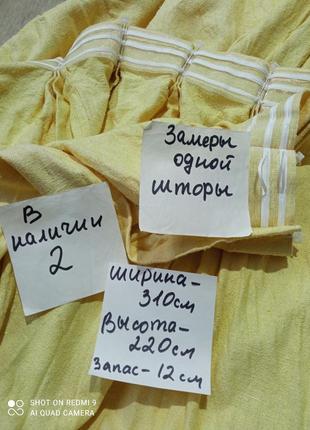 Замеры
одной
шторы
В
наличии
2
ширина-
310см
Высота-
220см
Запас-12см
SHOT ON REDMI 9
AI QUAD CAMERA